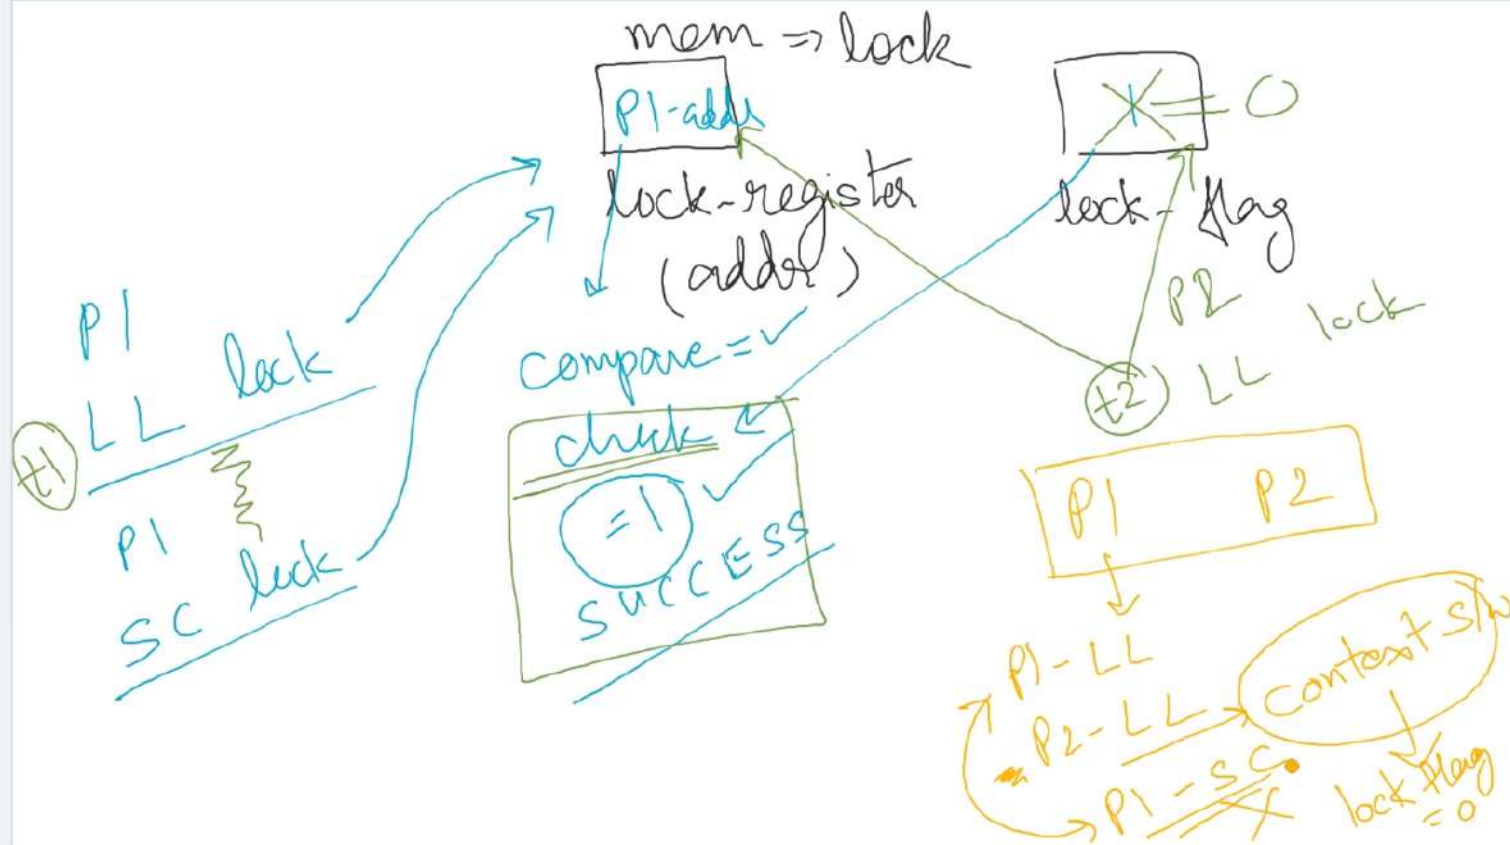 mem => lock
P1-addr
X = 0
lock-register
(addr)
lock-flag
P1
LL lock
t1
P1
SC lock
compare = ✓
check
= 1 ✓
SUCCESS
P2
t2 LL lock
P1 P2
P1 - LL
P2 - LL
context s/w
P1 - SC X
lock flag
= 0